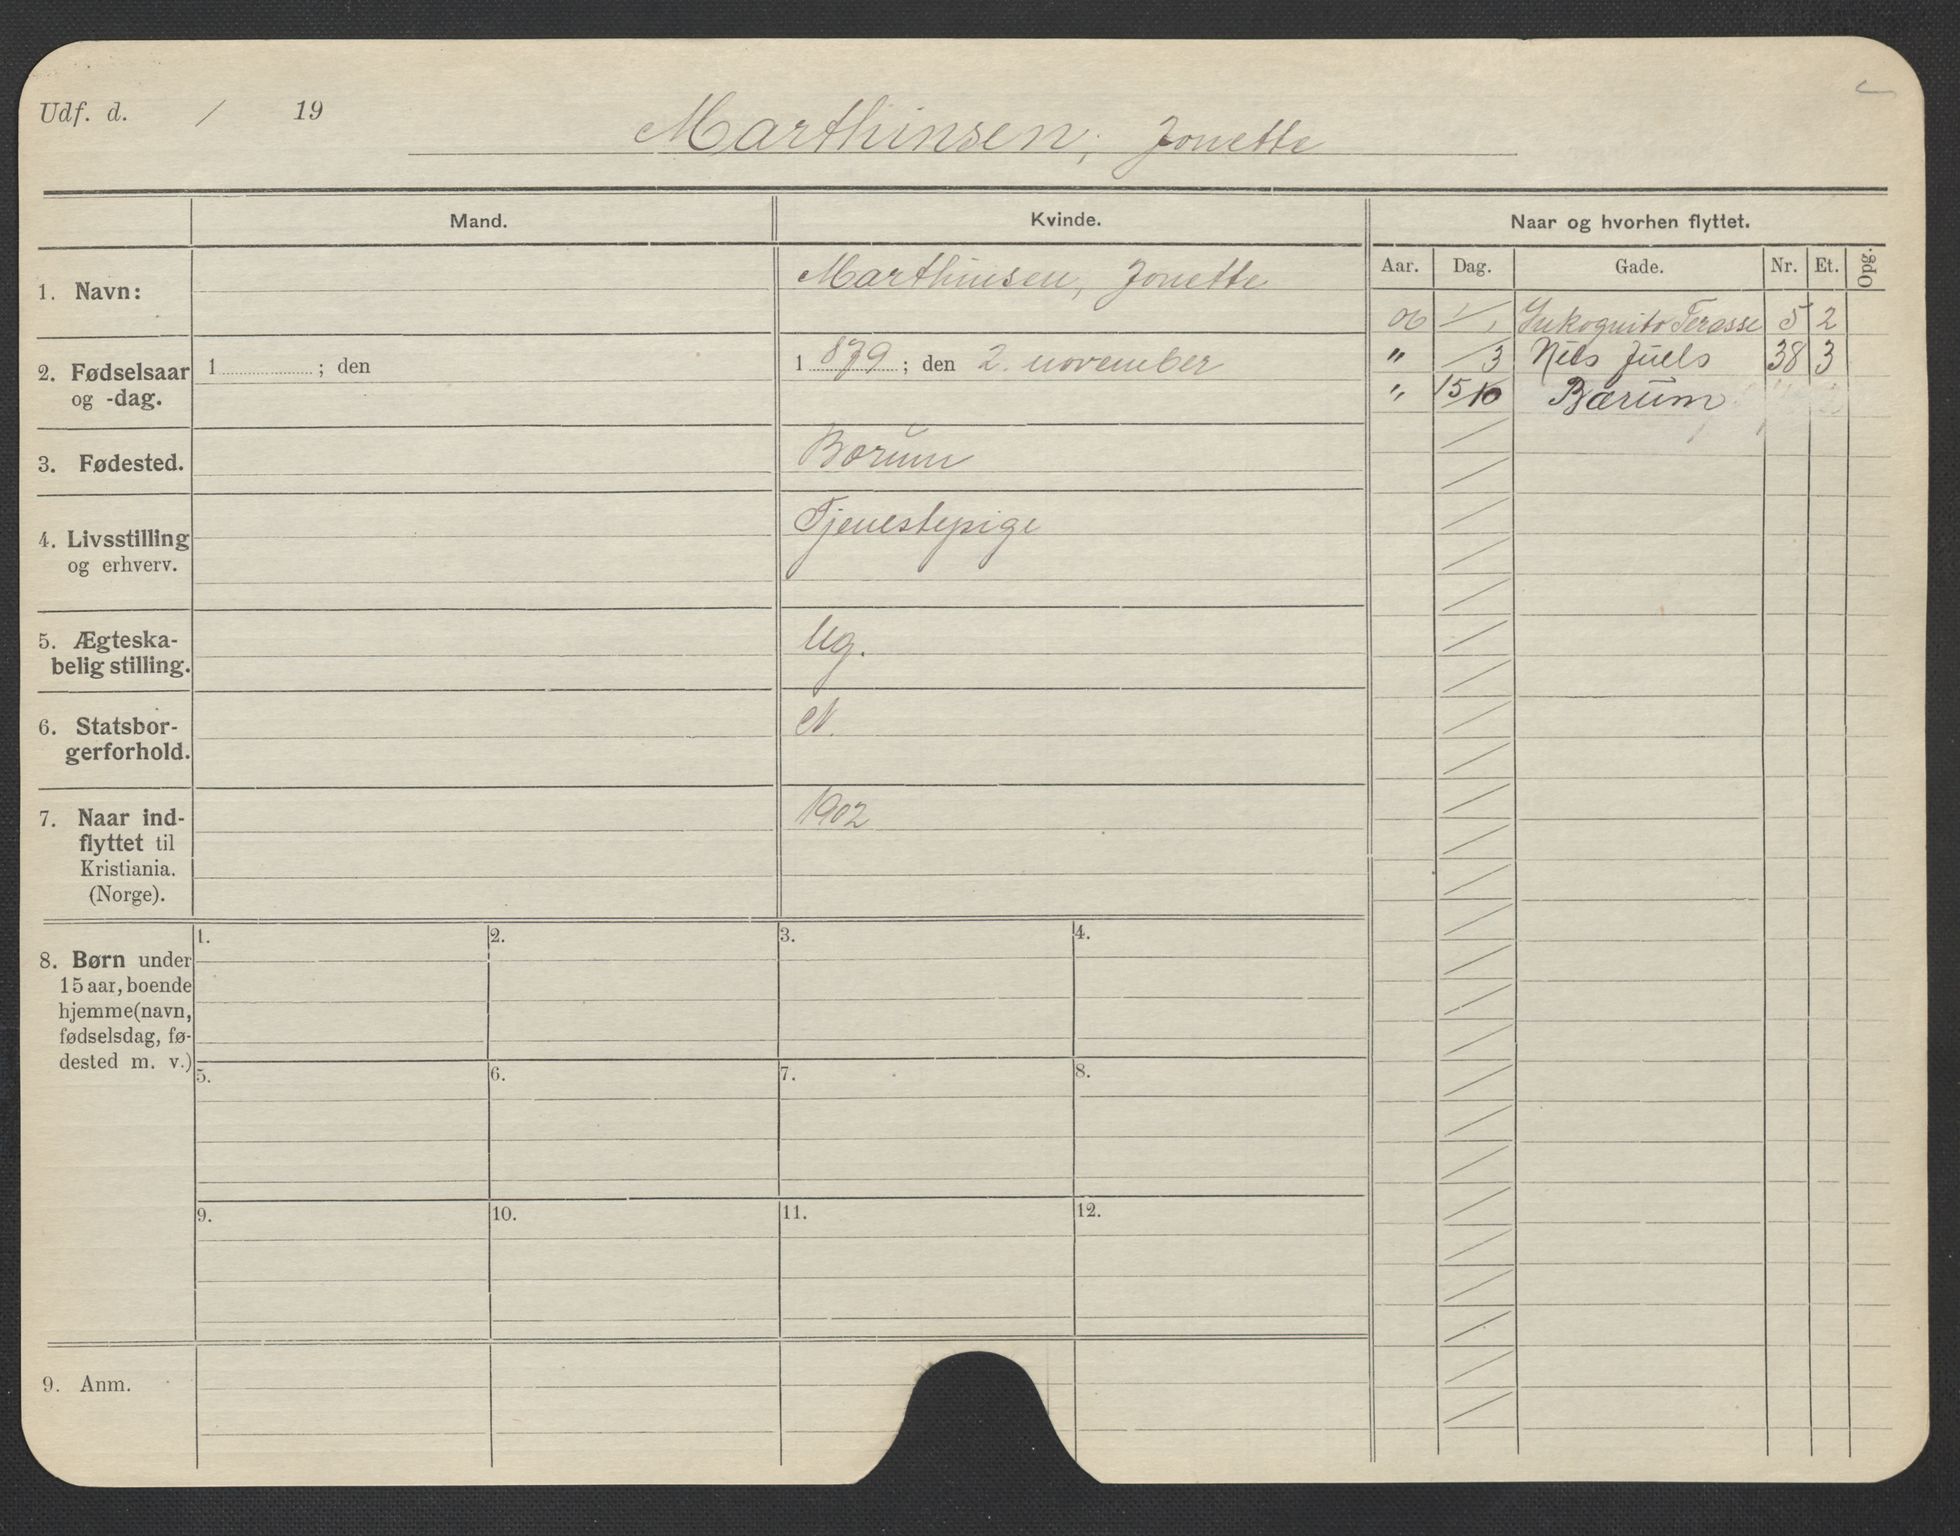 Udf. d. / 19
Marthinsen, Jonette
Mand.
Kvinde.
Naar og hvorhen flyttet.
Aar. Dag. Gade. Nr. Et. Opg.
1. Navn:
Marthinsen, Jonette
06 1/1 Inkognito Terasse 5 2
" /3 Niels Juels 38 3
" 15/10 Bærum
2. Fødselsaar
og -dag.
1 ; den
1 879 ; den 2. november
3. Fødested.
Bærum
4. Livsstilling
og erhverv.
Tjenestepige
5. Ægteska-
belig stilling.
Ug.
6. Statsbor-
gerforhold.
N.
7. Naar ind-
flyttet til
Kristiania.
(Norge).
1902
8. Børn under
15 aar, boende
hjemme (navn,
fødselsdag, fø-
dested m. v.)
1. 2. 3. 4.
5. 6. 7. 8.
9. 10. 11. 12.
9. Anm.